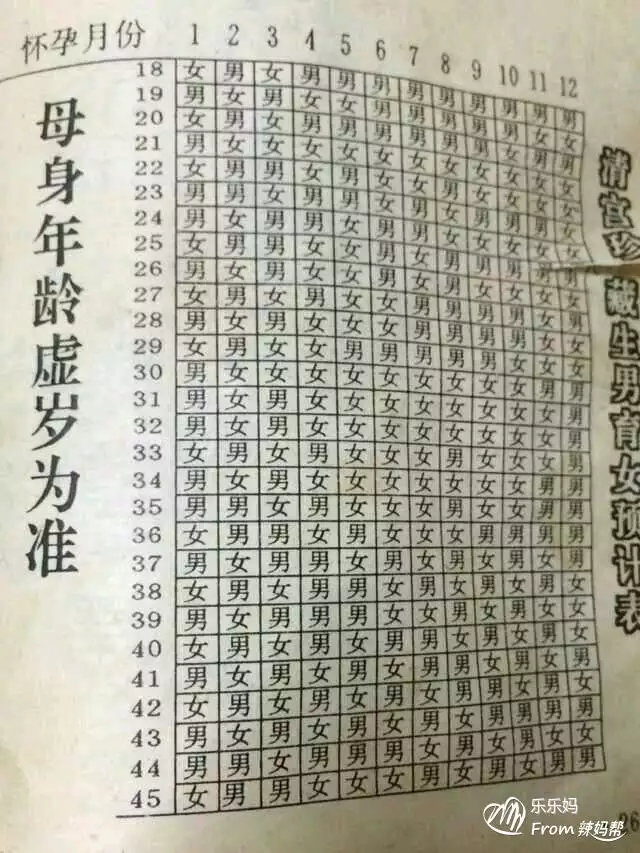 怀孕月份 1 2 3 4 5 6 7 8 9 10 11 12
18 女 男 女 男 男 男 男 男 男 男 男 男
19 男 女 男 女 女 男 男 男 男 男 女 女
20 女 男 女 男 男 男 男 男 男 女 男 男
21 男 女 女 女 女 女 女 女 女 女 女 女
22 女 男 男 女 男 女 女 男 女 女 女 女
23 男 男 女 男 男 女 男 女 男 男 男 女
24 男 女 男 男 女 男 男 女 女 女 女 女
25 女 男 男 女 女 男 女 男 男 男 男 男
26 男 女 男 女 女 男 女 男 女 女 女 女
27 女 男 女 男 女 女 男 男 男 男 女 男
28 男 女 男 女 女 女 男 男 男 男 女 女
29 女 男 女 女 男 男 男 男 男 女 女 女
30 男 女 女 女 女 女 女 女 女 女 男 男
31 男 女 男 女 女 女 女 女 女 女 女 男
32 男 女 男 女 女 女 女 女 女 女 女 男
33 女 男 女 男 女 女 女 男 女 女 女 男
34 男 女 男 女 女 女 女 女 女 女 男 男
35 男 男 女 男 女 女 女 男 女 女 男 男
36 女 男 男 女 男 女 女 女 男 男 男 男
37 男 女 男 男 女 男 女 男 女 男 女 男
38 女 男 女 男 男 女 男 女 男 女 男 女
39 男 女 男 男 男 女 女 男 女 男 女 女
40 女 男 女 男 女 男 男 女 男 女 男 女
41 男 女 男 女 男 女 男 男 女 男 女 男
42 女 男 女 男 女 男 女 男 男 女 男 女
43 男 女 男 女 男 女 男 女 男 男 男 男
44 男 男 女 男 男 男 女 男 女 男 女 女
45 女 男 男 女 女 女 男 女 男 女 男 男
母身年龄虚岁为准
清宫珍藏生男育女预计表
26
乐乐妈
From 辣妈帮